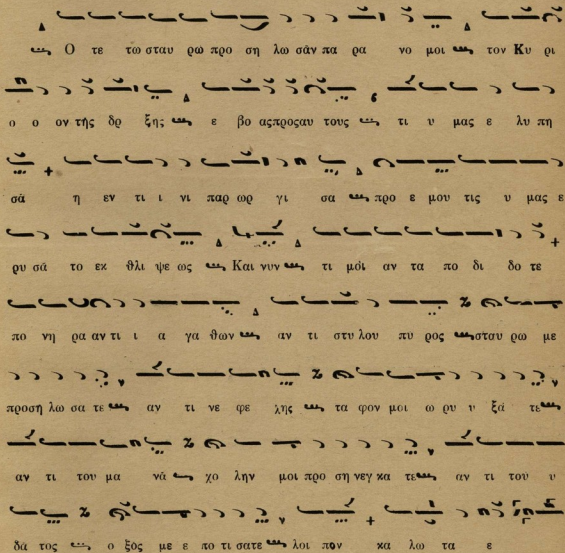 Ο τε τω σταυ ρω προ ση λω σάν πα ρα νο μοι τον Κυ ρι
ο ο ον τής δρ ξης ε βο ας προς αυ τους τι υ μας ε λυ πη
σά η εν τι ι νι παρ ωρ γι σα προ ε μου τις υ μας ε
ρυ σά το εκ θλι ψε ως Και νυν τι μόι αν τα πο δι δο τε
πο νη ρα αν τι ι α γα θων αν τι στυ λου πυ ρος σταυ ρω με
προση λω σα τε αν τι νε φε λης τα φον μοι ω ρυ υ ξά τε
αν τι του μα νά χο λην μοι προ ση νεγ κα τε αν τι του υ
δα τος ο ξος με ε πο τι σατε λοι πον κα λω τα ε